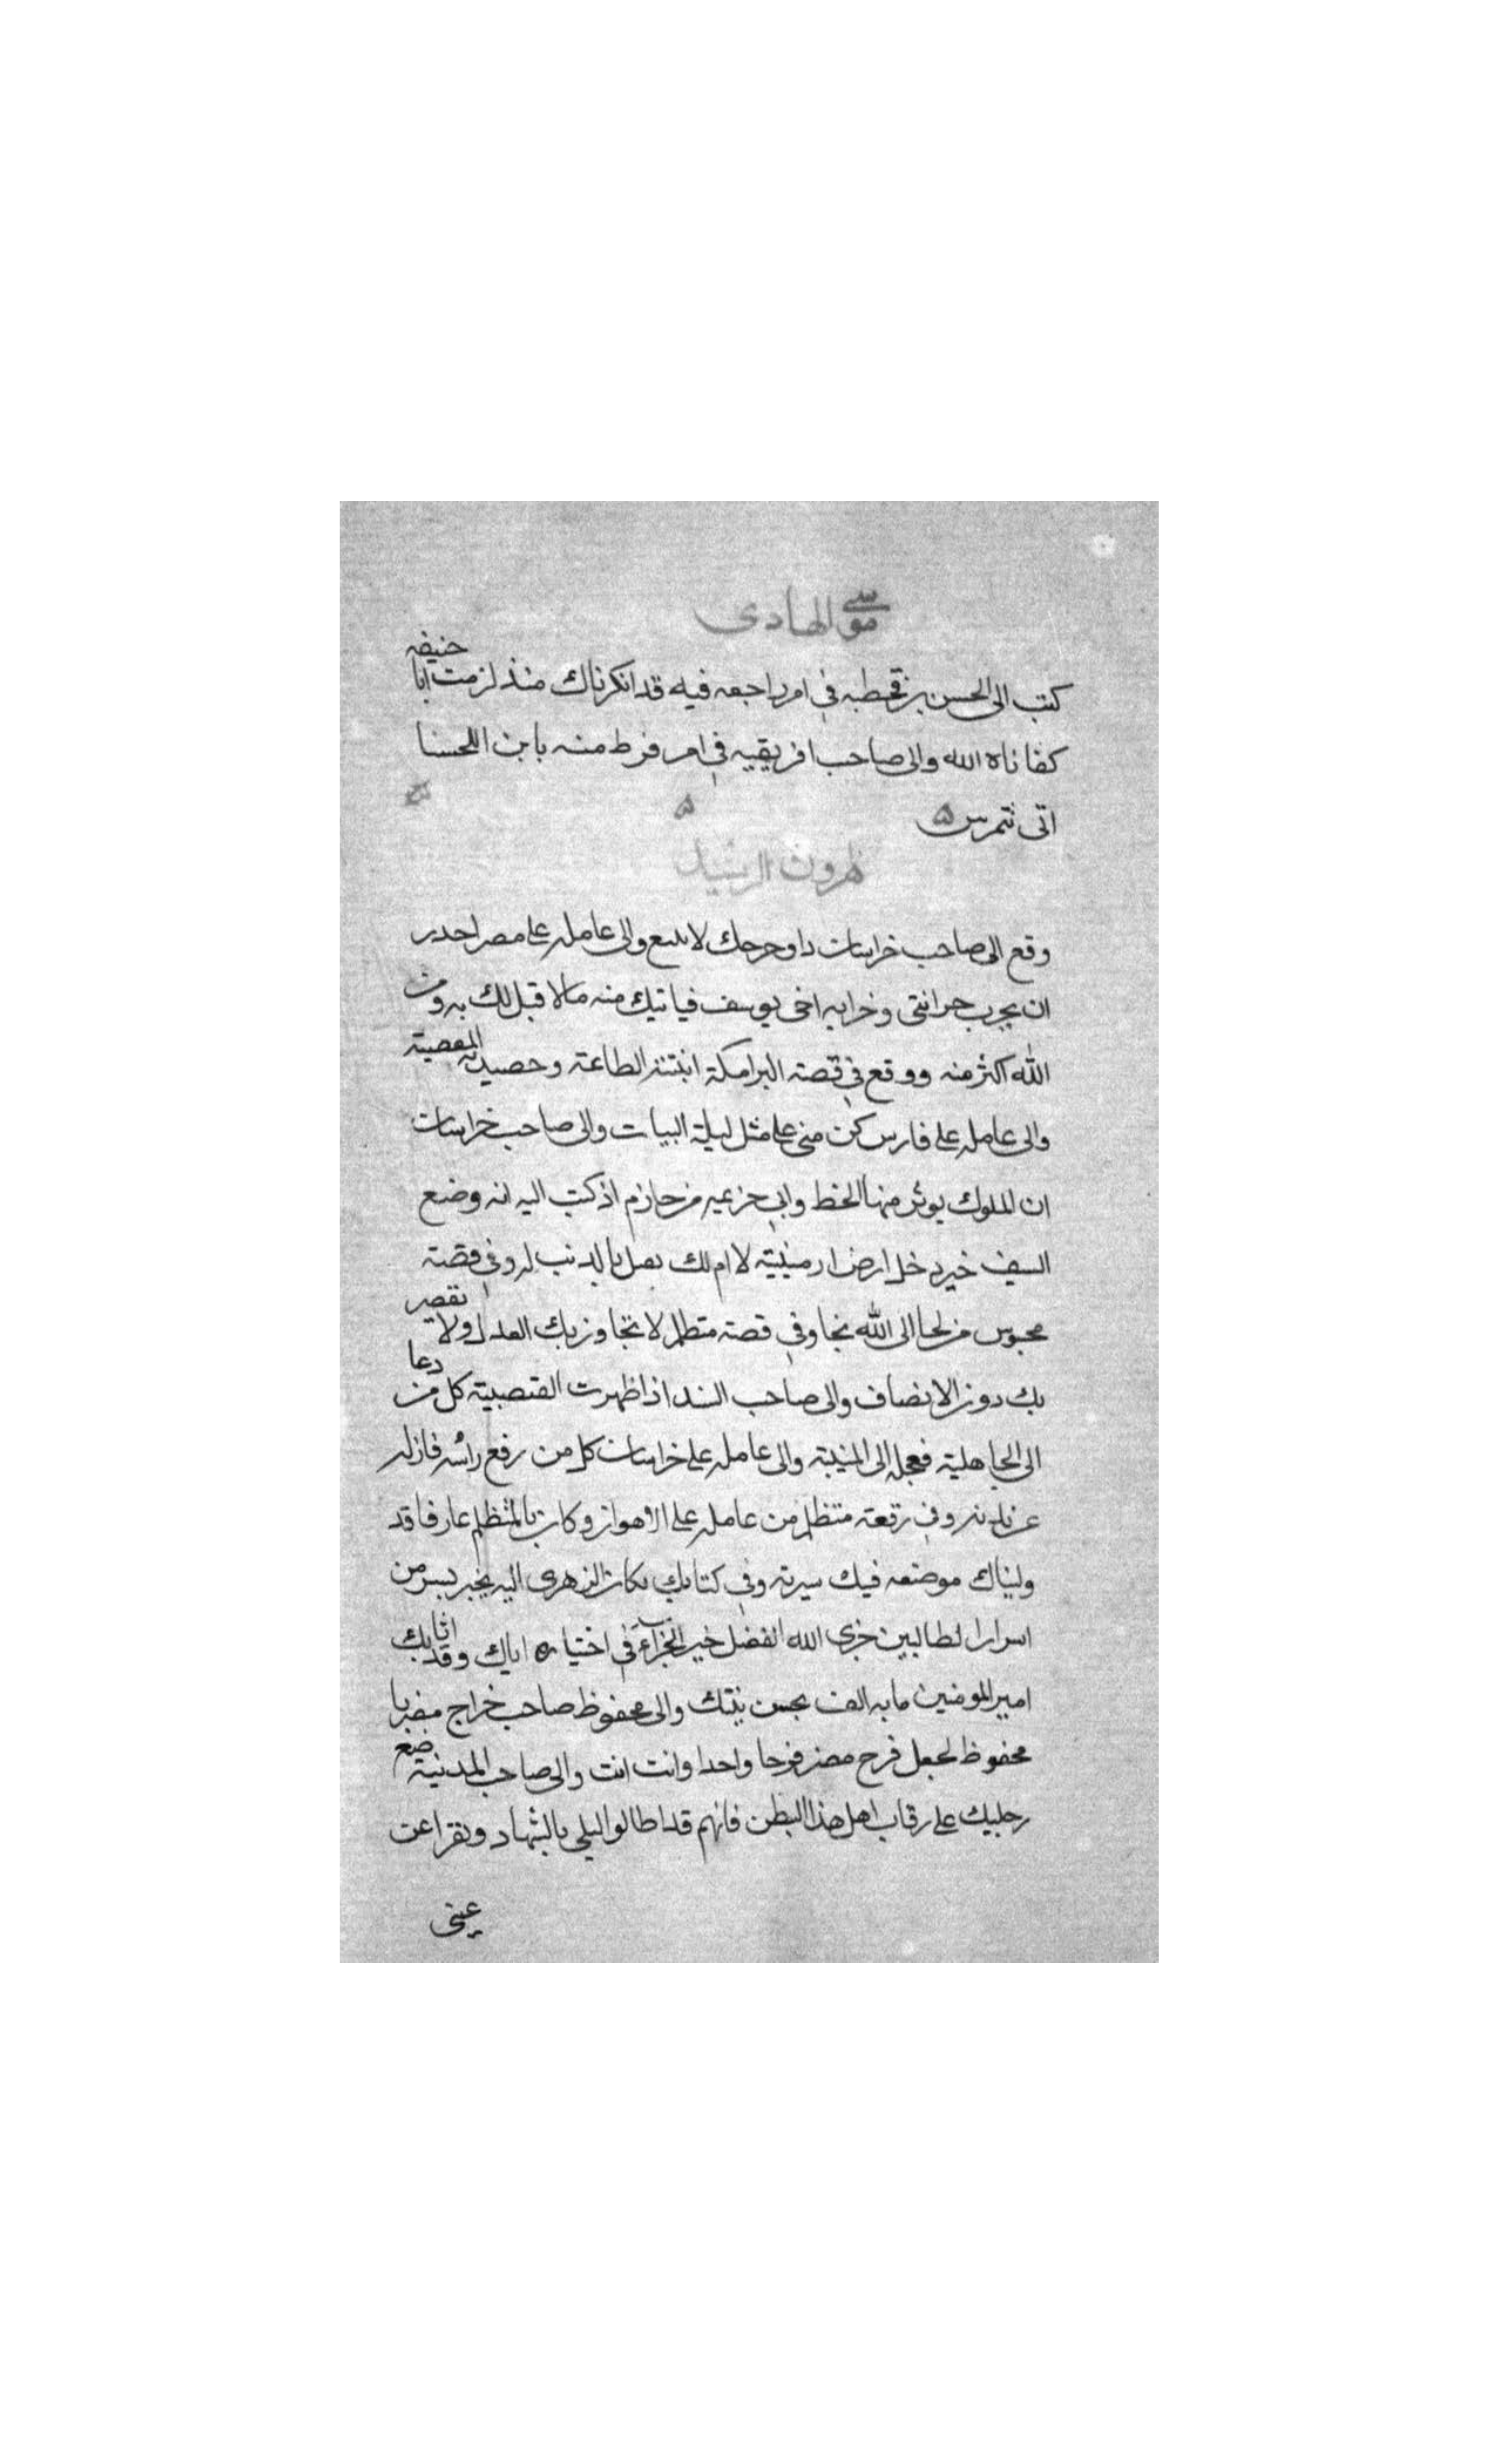 موسى الهادى
كتب الى الحسن بن قحطبه فى امر راجعه فيه قد انكرناك منذ لزمت ابا حنيفه
كفاناه الله والى صاحب افريقيه فى امر فرط منه يا بن اللخنا
انى تتمرس
هرون الرشيد
وقع الى صاحب خراسان داو جرحك لا يتسع والى عامله على مصر احذر
ان يخرب خزانتى وخزانه اخى يوسف فياتيك منه مالا قبل لك به ومن
الله اكثر منه ووقع فى قصة البرامكة انبتته الطاعة وحصدته المعصية
والى عامله على فارس كن منى على مثل ليلة البيات والى صاحب خراسان
ان الملوك يوثر منها الخط والى خزيمه بن حازم اذ كتب اليه انه وضع
السيف حين دخل ارض ارمينية لا ام لك تقتل بالذنب له وفى قصة
محبوس من لجا الى الله نجا وفى قصة متظلم لا تجاوز بك العدل ولا تقصر
بك دون الانصاف والى صاحب السند اذ اظهرت العصبية كل من دعا
الى الجاهلية فعجله الى المنية والى عامله على خراسان كل من رفع راسه فازله
عن بدنه وفى رقعة متظلم من عامله على الاهواز وكان بالمتظلم عارفا قد
وليناك موضعه فيك سيرته وفى كتاب بكار الزهرى اليه يخبر بسر من
اسرار الطالبين جزى الله الفضل خير الجزاء فى اختياره اياك وقد اثابك
امير المومنين مايه الف بحسن نيتك والى محفوظ صاحب خراج مصر يا
محفوظ اجعل فرح مصر فرحا واحدا وانت انت والى صاحب المدينة ضع
رجليك على رقاب اهل هذا البطن فانهم قد اطالوا ليلى بالسهاد ونفوا عن
عينى